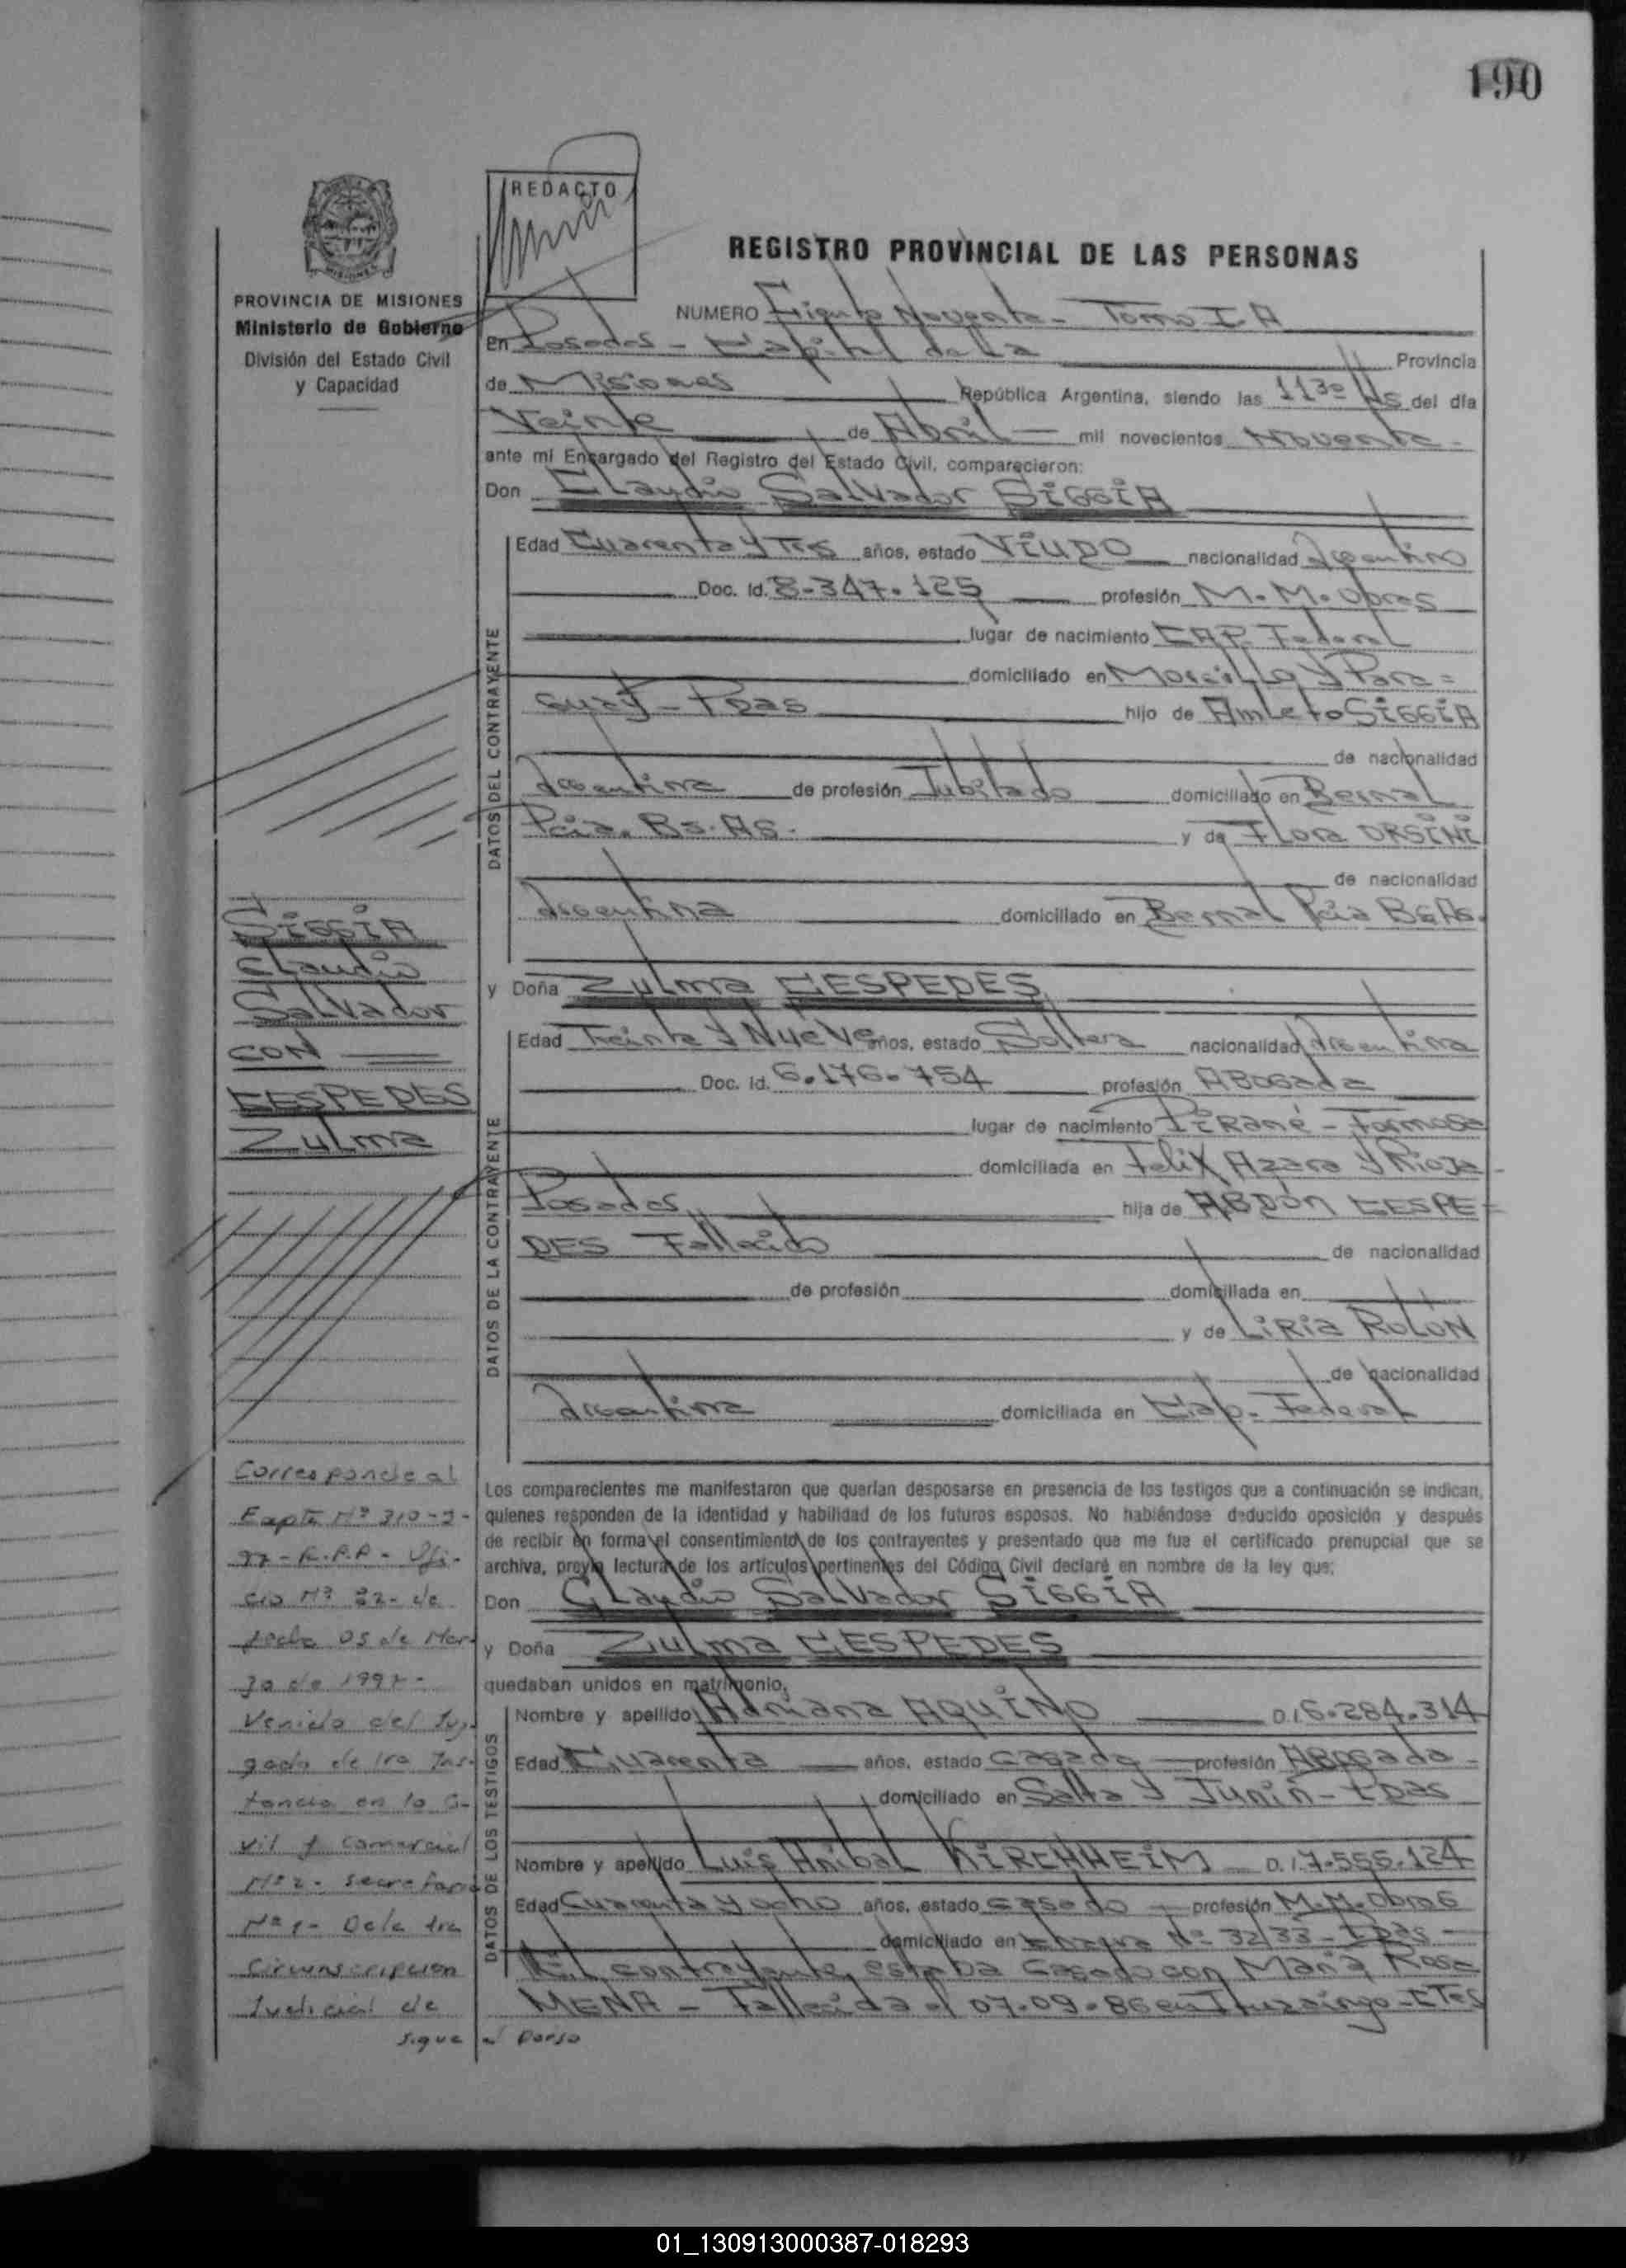 190
REDACTO
PROVINCIA DE MISIONES
Ministerio de Gobierno
División del Estado Civil
y Capacidad
REGISTRO PROVINCIAL DE LAS PERSONAS
NUMERO Ciento Noventa - Tomo I A
en Posadas - Capital de La Provincia
de Misiones República Argentina, siendo las 11 30 Hs del día
Veinte de Abril mil novecientos Noventa -
ante mi Encargado del Registro del Estado Civil, comparecieron:
Don Claudio Salvador SiGGiA
DATOS DEL CONTRAYENTE
Edad Cuarenta y Tres años, estado ViUDO nacionalidad Argentino
Doc. Id. 8-347.125 profesión M.M. Obras
lugar de nacimiento CAP. Federal
domiciliado en y Para =
guay - Pdas hijo de Amleto SiGGiA
de nacionalidad
Argentina de profesión Jubilado domiciliado en Bernal
Pcia. Bs. As. y de Flora ORSiNi
de nacionalidad
Argentina domiciliado en Bernal Pcia Bs As.
y Doña Zulma CESPEDES
DATOS DE LA CONTRAYENTE
Edad Treinta y Nueve años, estado Soltera nacionalidad Argentina
Doc. Id. 6.176.754 profesión ABogada
lugar de nacimiento PiRané - Formosa
domiciliada en Felix Azara y Rioja -
Posadas hija de ABDón CESPE =
DES Fallecido de nacionalidad
de profesión domiciliada en
y de LiRia ROLON
de nacionalidad
Argentina domiciliada en Cap. Federal
SiGGiA
Claudio
Salvador
CON
CESPEDES
Zulma
Los comparecientes me manifestaron que querían desposarse en presencia de los testigos que a continuación se indican,
quienes responden de la identidad y habilidad de los futuros esposos. No habiéndose deducido oposición y después
de recibir en forma el consentimiento de los contrayentes y presentado que me fue el certificado prenupcial que se
archiva, previa lectura de los artículos pertinentes del Código Civil declaré en nombre de la ley que:
Don Claudio Salvador SiGGiA
y Doña Zulma CESPEDES
quedaban unidos en matrimonio.
DATOS DE LOS TESTIGOS
Nombre y apellido Adriana AQUiNO D.I 6.284.314
Edad Cuarenta años, estado Casada profesión ABogada -
domiciliado en Salta y Junin - Pdas
Nombre y apellido Luis Anibal KiRCHHEiM D.I 7.556.124
Edad Cuarenta y ocho años, estado casado profesión M.M. Obras
domiciliado en Chacra Nº 32/33 - Pdas
El contrayente estaba Casado con Maria Rosa
MENA - Fallecida el 07.09.86 en Ituzaingo - CTes
Corresponde al
Expte Nº 310-
97 - R.P.P - Ofi-
cio Nº 22 - de
fecha 05 de Mar-
zo de 1997 -
Venido del Juz-
gado de 1ra Ins-
tancia en lo Ci-
vil y Comercial
Nº 2 - Secretaria
Nº 1 - De la 1ra
Circunscripcion
Judicial de
Sigue al Dorso
01_130913000387-018293